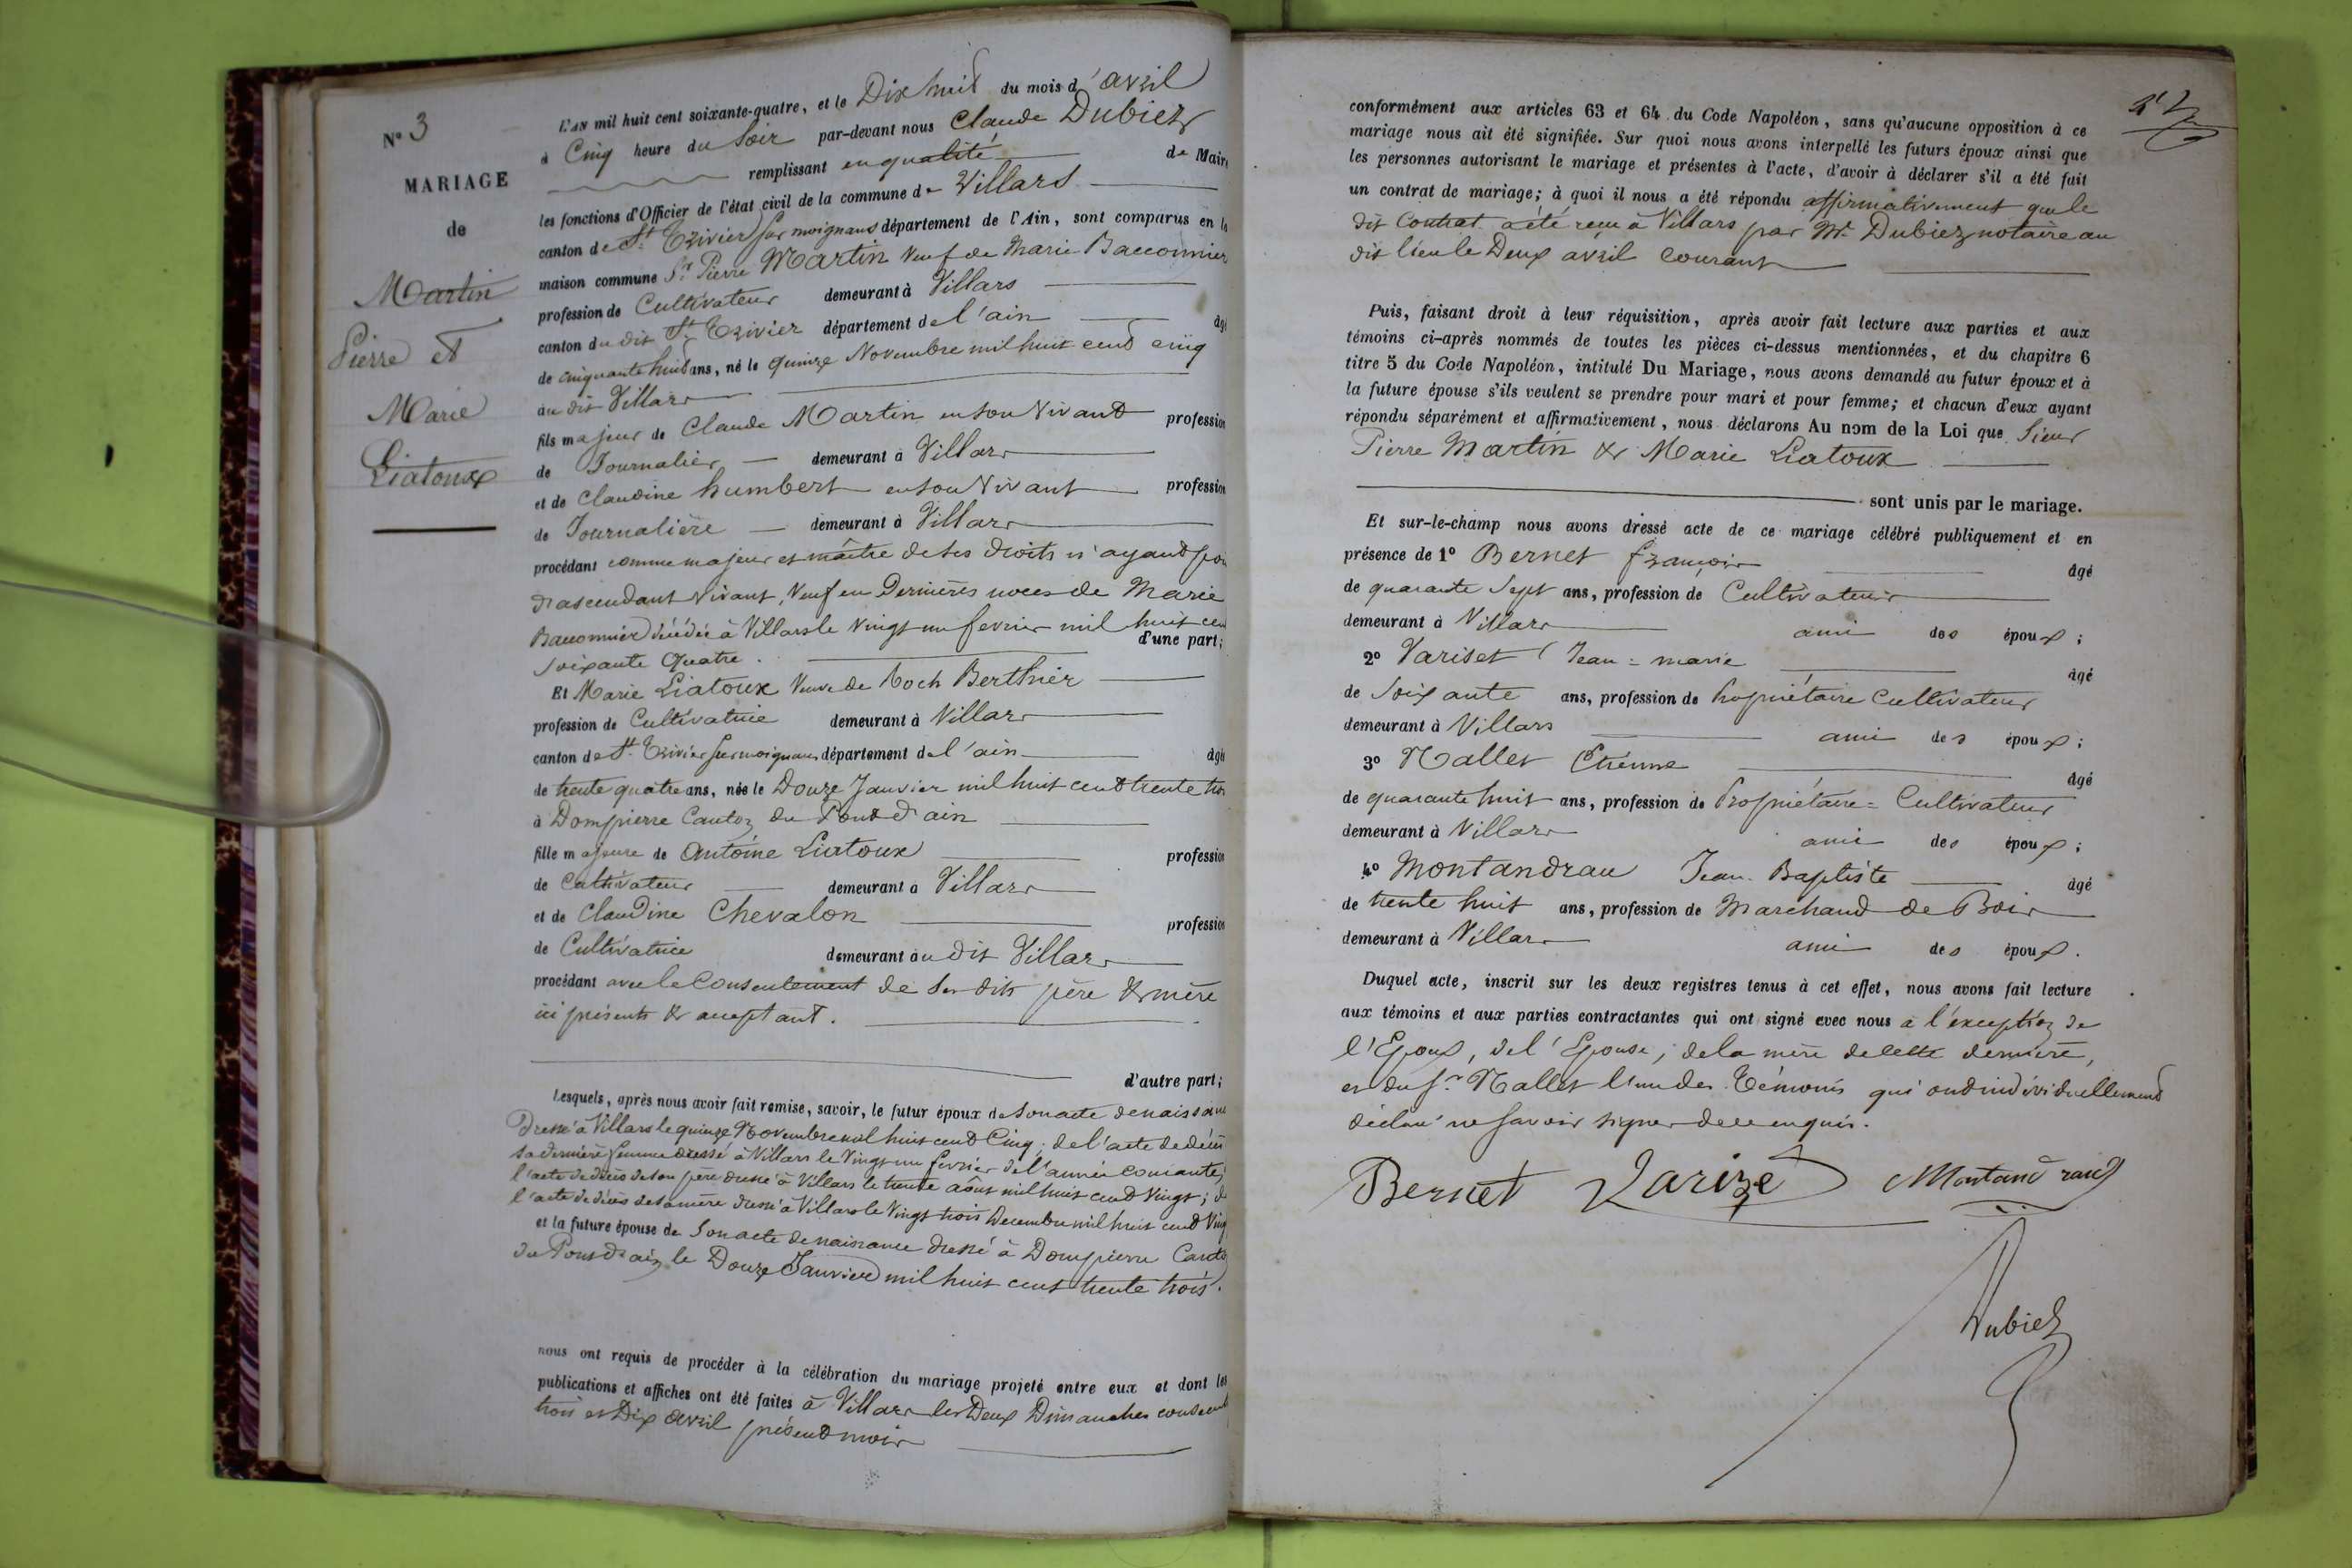 N° 3
MARIAGE
de
Martin
Pierre et
Marie
Liatoux
L'AN mil huit cent soixante-quatre, et le Dix huit du mois d'avril
à Cinq heure du Soir par-devant nous Claude Dubiez
remplissant en qualité de Maire
les fonctions d'Officier de l'état civil de la commune de Villars
canton de St Trivier sur moignans département de l'Ain, sont comparus en la
maison commune Sr Pierre Martin Veuf de Marie Bacconnier
profession de Cultivateur demeurant à Villars
canton du dit St Trivier département de l'ain âgé
de cinquante huit ans, né le quinze Novembre mil huit cent cinq
au dit Villars
fils majeur de Claude Martin en son vivant profession
de Journalier demeurant à Villars
et de Claudine humbert en son vivant profession
de Journalière demeurant à Villars
procédant comme majeur et maître de ses droits n'ayant
d'ascendant vivant, Veuf en Dernières noces de Marie
Bacconnier décédée à Villars le vingt un fevrier mil huit cen
d'une part;
soixante Quatre.
Et Marie Liatoux Veuve de Roch Berthier
profession de Cultivatrice demeurant à Villars
canton de St Trivier sur moignans département de l'ain âgée
de trente quatre ans, née le Douze Janvier mil huit cent trente
à Dompierre Canton du Pont d'ain
fille majeure de Antoine Liatoux profession
de Cultivateur demeurant à Villars
et de Claudine Chevalon profession
de Cultivatrice demeurant au dit Villars
procédant avec le Consentement de ses dits père & mère
ici présents & acceptant.
d'autre part;
Lesquels, après nous avoir fait remise, savoir, le futur époux de Son acte de naissance
Dressé à Villars le quinze Novembre mil huit cent Cinq; de l'acte de décès
sa dernière femme dressé à Villars le Vingt un fevrier de l'année courante;
l'acte de décès de son père dressé à Villars le trente août mil huit cent Vingt; de
l'acte de décès de sa mère dressé à Villars le Vingt trois Decembre mil huit cent Ving
et la future épouse de Son acte de naissance dressé à Dompierre Canto
du Pont d'ain le Douze Janvier mil huit cent trente trois.
nous ont requis de procéder à la célébration du mariage projeté entre eux et dont les
publications et affiches ont été faites à Villars les Deux Dimanches
trois et Dix avril présent mois
conformément aux articles 63 et 64 du Code Napoléon, sans qu'aucune opposition à ce
mariage nous ait été signifiée. Sur quoi nous avons interpellé les futurs époux ainsi que
les personnes autorisant le mariage et présentes à l'acte, d'avoir à déclarer s'il a été fait
un contrat de mariage; à quoi il nous a été répondu affirmativement que le
dit Contrat a été reçu à Villars par Me Dubiez notaire au
dit lieu le Deux avril courant
Puis, faisant droit à leur réquisition, après avoir fait lecture aux parties et aux
témoins ci-après nommés de toutes les pièces ci-dessus mentionnées, et du chapitre 6
titre 5 du Code Napoléon, intitulé Du Mariage, nous avons demandé au futur époux et à
la future épouse s'ils veulent se prendre pour mari et pour femme; et chacun d'eux ayant
répondu séparément et affirmativement, nous déclarons Au nom de la Loi que Sieur
Pierre Martin & Marie Liatoux
sont unis par le mariage.
Et sur-le-champ nous avons dressé acte de ce mariage célébré publiquement et en
présence de 1° Bernet françois âgé
de quarante Sept ans, profession de Cultivateur
demeurant à Villars ami des époux;
2° Variset Jean=marie âgé
de Soixante ans, profession de Propriétaire Cultivateur
demeurant à Villars ami des époux;
3° Nallet Etienne âgé
de quarante huit ans, profession de Propriétaire=Cultivateur
demeurant à Villars ami des époux;
4° Montandrau Jean Baptiste âgé
de trente huit ans, profession de Marchand de Bois
demeurant à Villars ami des époux.
Duquel acte, inscrit sur les deux registres tenus à cet effet, nous avons fait lecture
aux témoins et aux parties contractantes qui ont signé avec nous à l'exception de
l'Epoux, de l'Epouse, de la mère de cette dernière,
et du Sr Nallet l'un des Témoins qui ont individuellement
déclaré ne savoir signer de ce enquis.
Bernet Varize Montandrau
Dubiez